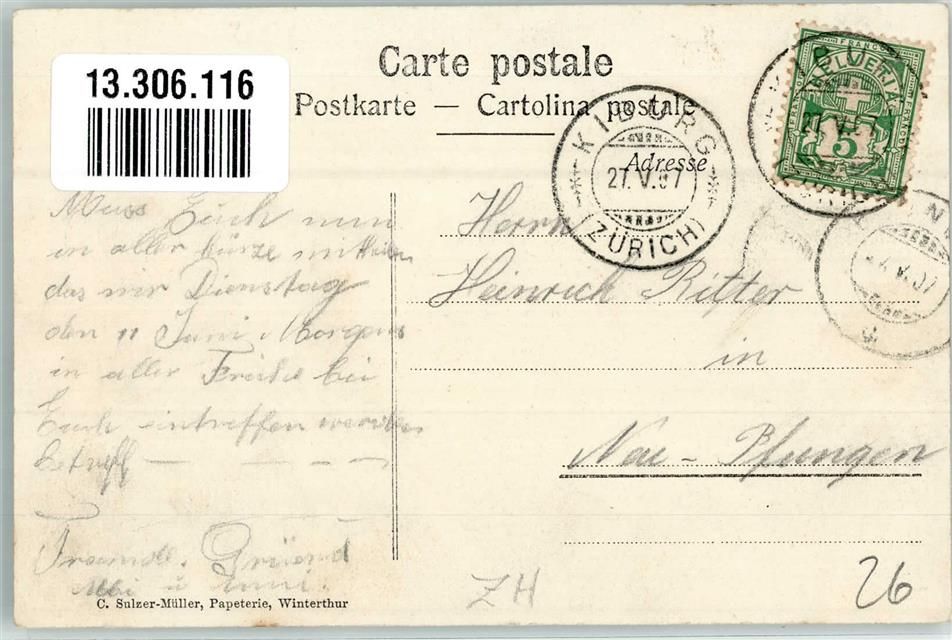 13.306.116
Carte postale
Postkarte — Cartolina postale
Adresse
KIBURG
27.V.07
(ZÜRICH)
HELVETIA
FRANCO
5
V.07
Muss Euch nun
in aller kürze mitteilen
das wir Dienstag
den 11 Juni Morgens
in aller Frühe bei
Euch eintreffen werden
betreff — — – –
Freundl. Grüend
u
Herrn
Heinrich Ritter
in
Neu-Pfungen
ZH
26
C. Sulzer-Müller, Papeterie, Winterthur